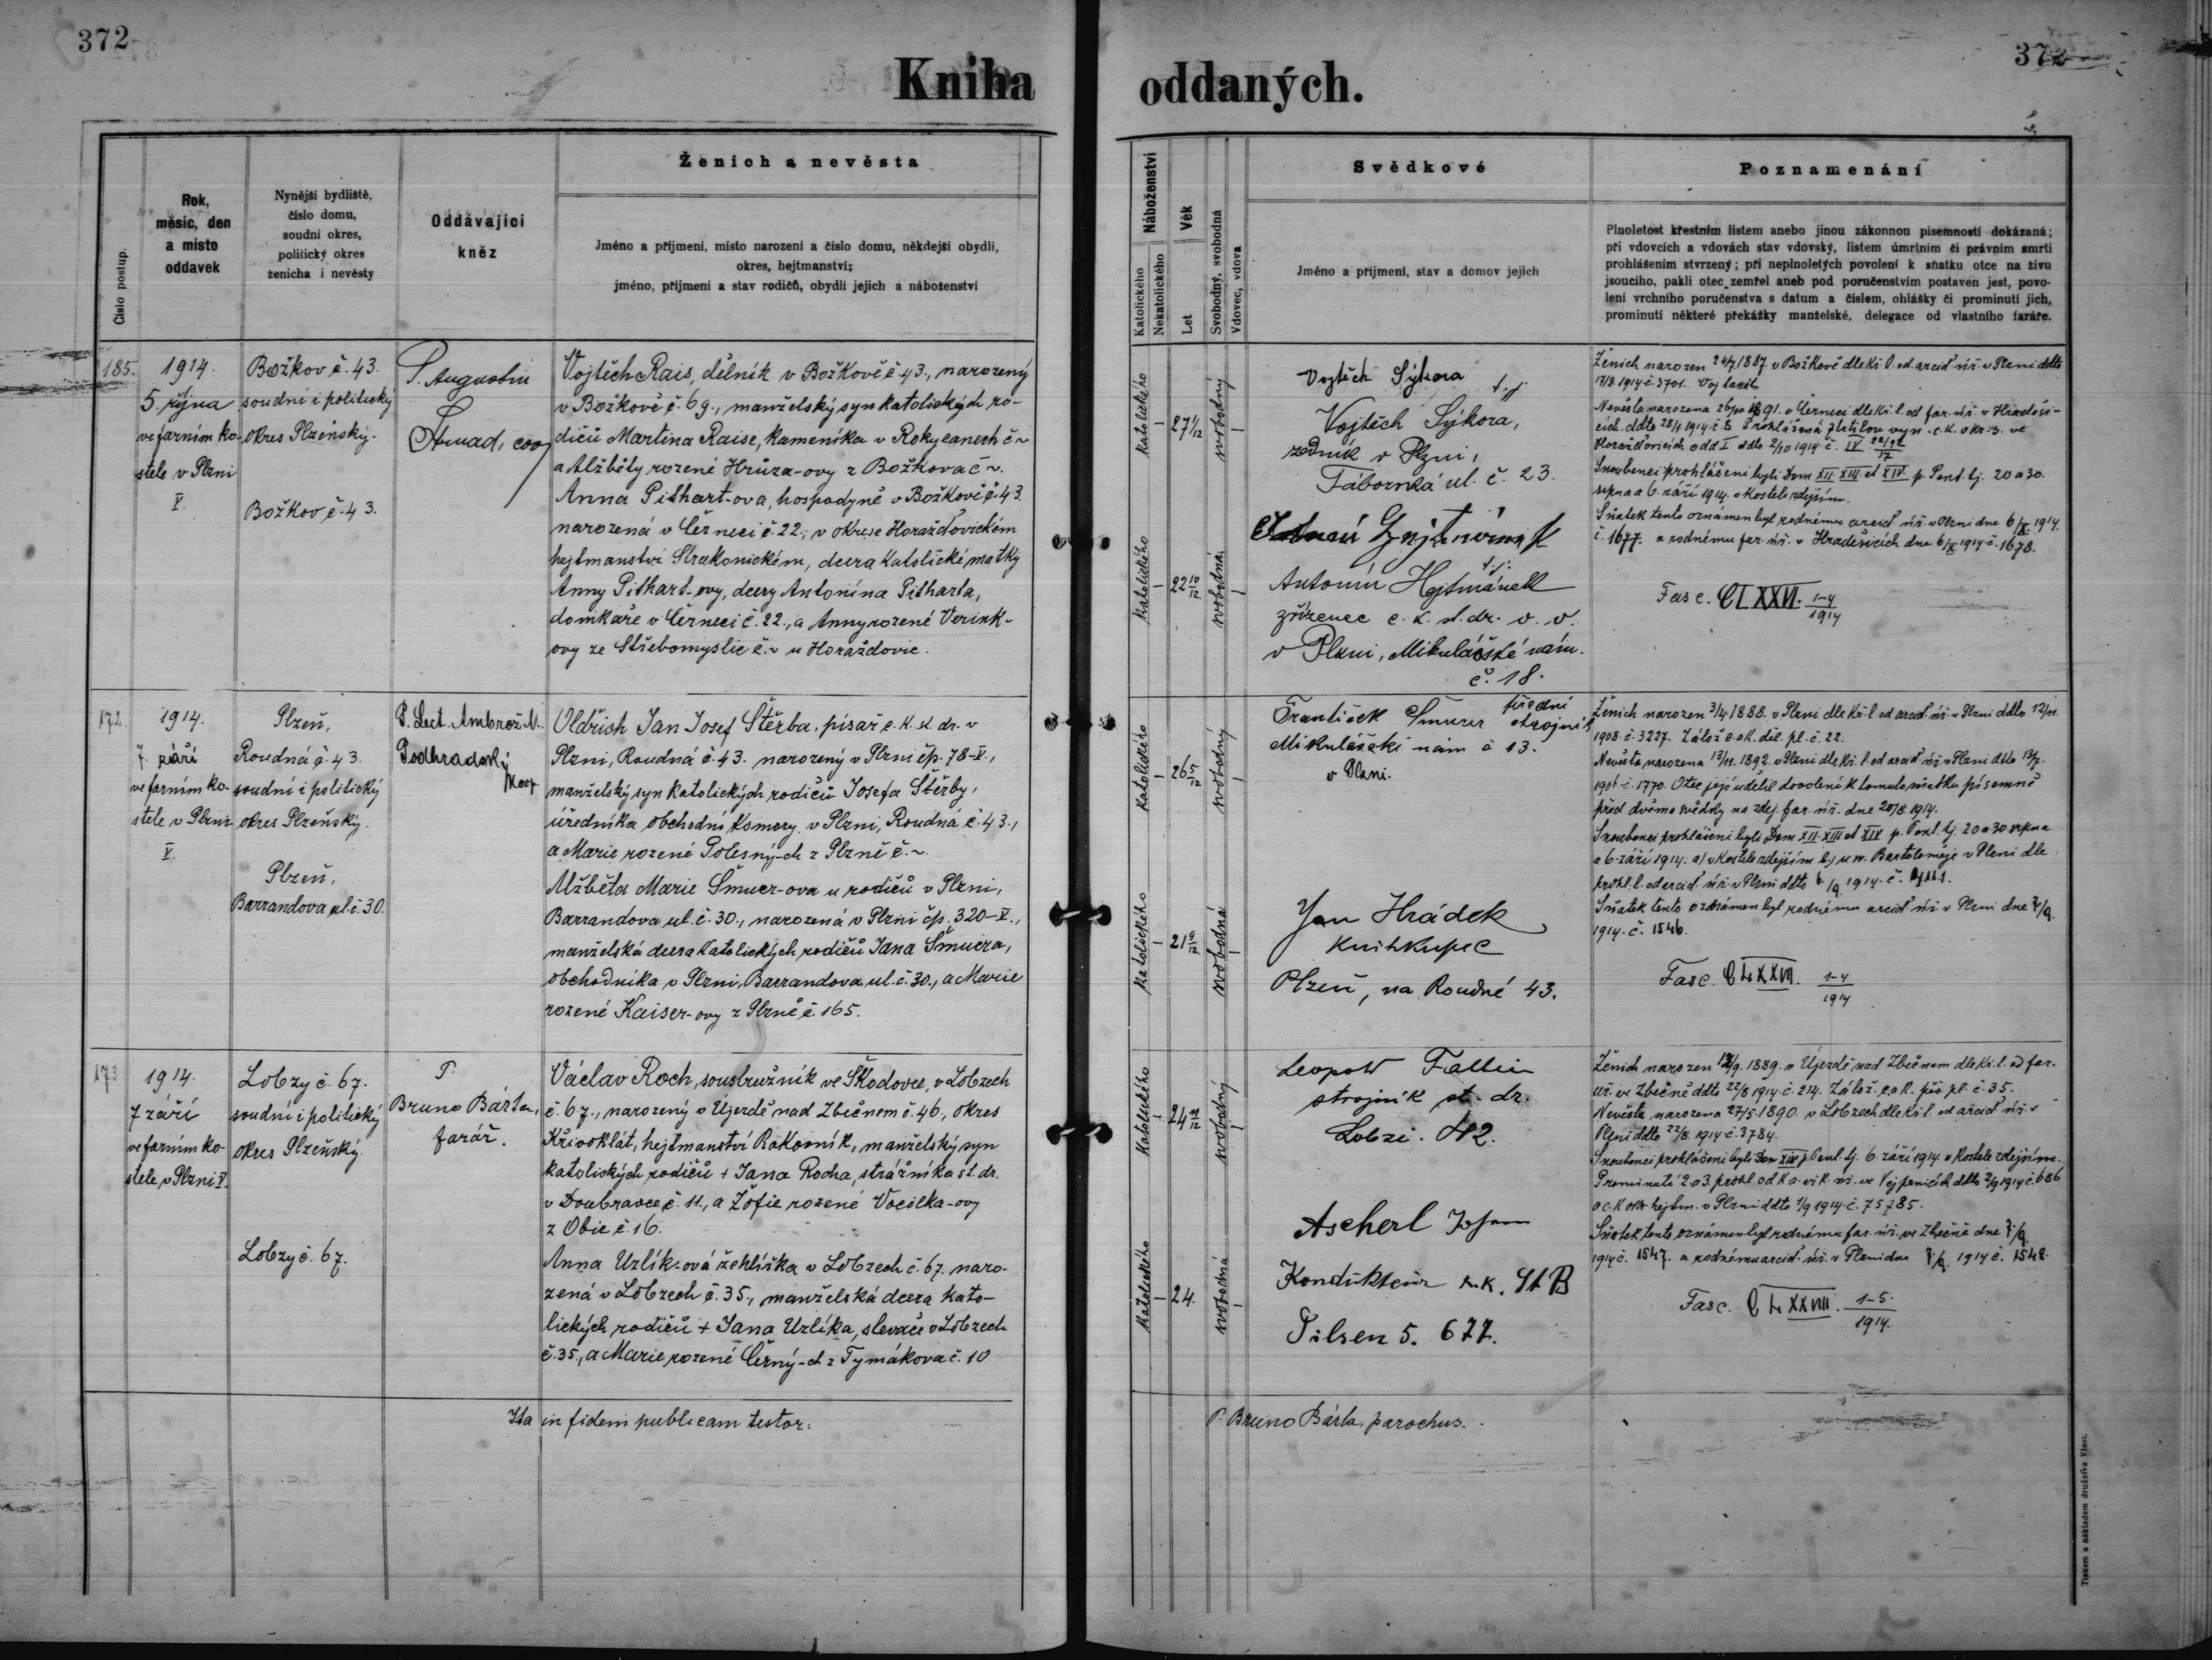 372
372
Kniha oddaných.
Číslo postup.
Rok,
měsíc, den
a místo
oddavek
Nynější bydliště,
číslo domu,
soudní okres,
politický okres
ženicha i nevěsty
Oddávající
kněz
Ženich a nevěsta
Jméno a příjmení, místo narození a číslo domu, někdejší obydlí,
okres, hejtmanství;
jméno, příjmení a stav rodičů, obydlí jejich a náboženství
Náboženství
Katolického
Nekatolického
Věk
Let
Svobodný, svobodná
Vdovec, vdova
Svědkové
Jméno a příjmení, stav a domov jejich
Poznamenání
Plnoletost křestním listem anebo jinou zákonnou písemností dokázaná;
při vdovcích a vdovách stav vdovský, listem úmrtním či právním smrti
prohlášením stvrzený; při neplnoletých povolení k sňatku otce na živu
jsoucího, pakli otec zemřel aneb pod poručenstvím postaven jest, povo-
lení vrchního poručenstva s datum a číslem, ohlášky či prominutí jich,
prominutí některé překážky manželské, delegace od vlastního faráře.
185.
1914.
5. října
ve farním ko-
stele v Plzni
V.
Božkov č. 43.
soudní i politický
okres Plzeňský.
Božkov č. 43.
P. Augustin
coop
Vojtěch Rais, dělník v Božkově č. 43., narozený
v Božkově č. 69., manželský syn katolických ro-
dičů Martina Raise, kameníka v Rokycanech č ~
a Alžběty rozené Hrůza-ovy z Božkova č ~.
Anna Pithart-ova, hospodyně v Božkově č. 43.
narozená v Černeci č. 22., v okrese Horažďovickém
hejtmanství Strakonickém, dcera katolické matky
Anny Pithart-ovy, dcery Antonína Pitharta,
domkáře v Černeci č. 22., a Anny rozené Verink-
ovy ze Střebomyslic č. ~ u Horažďovic.
katolického
27 1/12
svobodný
katolického
22 10/12
svobodná
Vojtěch Sýkora
Vojtěch Sýkora,
zedník v Plzni,
Táborská ul. č. 23.
Antonín Hejtmánek
zřízenec c. k. st. dr. v. v.
v Plzni, Mikulášské nám.
č. 18.
Ženich narozen 24/7 1887 v Božkově dle kř. l. od arcid. úř. v Plzni ddto
17/8 1914 č. 3701.
Nevěsta narozena 26/10 1891. v Černeci dle kř. l. od far. úř. v Hradeši-
cích ddto 28/4 1914 č. 8
Horažďovicích odd I ddto 2/10 1914 č. IV
Snoubenci prohlášeni byli Dom XII XIII et XIV p. Pent. tj. 20 a 30.
srpna a 6. září 1914. v kostele zdejším.
Sňatek tento oznámen byl rodnému arcid. úř. v Plzni dne 6/X 1914.
č. 1677. a rodnému far. úř. v Hradešicích dne 6/X 1914 č. 1678.
Fasc. CLXXVI. 1-4/1914
172.
1914.
7. září
ve farním ko-
stele v Plzni
V.
Plzeň,
Roudná č. 43.
soudní i politický
okres Plzeňský.
Plzeň,
Barrandova ul. č. 30.
P. Lect. Ambrož M.
Podhradský
koop.
Oldřich Jan Josef Štěrba, písař c. k. st. dr. v
Plzni, Roudná č. 43. narozený v Plzni čp. 78-V.,
manželský syn katolických rodičů Josefa Štěrby,
úředníka obchodní komory v Plzni, Roudná č. 43.,
a Marie rozené Polesný-ch z Plzně č. ~
Alžběta Marie Šmucr-ova u rodičů v Plzni,
Barrandova ul. č. 30., narozená v Plzni čp. 320-V.,
manželská dcera katolických rodičů Jana Šmucra,
obchodníka v Plzni, Barrandova ul. č. 30., a Marie
rozené Kaiser-ovy z Plzně č. 165.
katolického
26 5/12
svobodný
katolického
svobodná
František Šmucr
strojník
Mikulášské nám č 13.
v Plzni.
Jan Hrádek
knihkupec
Plzeň, na Roudné 43.
Ženich narozen 3/4 1888. v Plzni dle kř. l. od arcid. úř. v Plzni ddto 12/11.
1908. č. 3227.
Nevěsta narozena 13/11. 1892. v Plzni dle kř. l. od arcid. úř. v Plzni ddto 13/7.
č. 1770. Otec její udělil dovolení k tomuto sňatku písemně
před dvěma svědky na zdej. far. úř. dne 20/8 1914.
Snoubenci prohlášeni byli Dom XII XIII et XIV p. Pent. tj. 20 a 30 srpna
a 6. září 1914. a) v kostele zdejším b) u sv. Bartoloměje v Plzni dle
prohl. l. od arcid. úř. v Plzni ddto 6/9 1914.
Sňatek tento oznámen byl rodnému arcid. úř. v Plzni dne 7/9.
1914. č. 1546.
Fasc. CLXXVII. 1-4/1914
173
1914.
7 září
ve farním ko-
stele v Plzni V.
Lobzy č. 67.
soudní i politický
okres Plzeňský.
Lobzy č. 67.
P.
Bruno Bárta,
farář.
Václav Roch, soustružník ve Škodovce, v Lobzech
č. 67., narozený v Újezdě nad Zbečnem č. 46., okres
Křivoklát, hejtmanství Rakovník, manželský syn
katolických rodičů + Jana Rocha, strážníka st. dr.
v Doubravce č. 11., a Žofie rozené Vocilka-ovy
z Obic č. 16.
Anna Uzlík-ová žehlířka v Lobzech č. 67. naro-
zená v Lobzech č. 35., manželská dcera kato-
lických rodičů + Jana Uzlíka, slevače v Lobzech
č. 35., a Marie rozené Černý-ch z Tymákova č. 10
katolického
24
svobodný
katolického
24.
svobodná
Leopold
strojník st. dr.
Lobzi.
Ascherl
Kondukteur k. k. St B
Pilsen 5. 677.
Ženich narozen 1889. v Újezdě nad Zbečnem dle kř. l. od far.
úř. ve Zbečně ddto 22/8 1914 č. 214.
Nevěsta narozena 27/5. 1890. v Lobzech dle kř. l. od arcid. úř. v
Plzni ddto 22/8. 1914 č. 3784.
Snoubenci prohlášeni byli Dom XIV p. Pent. tj. 6. září 1914. v kostele zdejším.
Prominutí 2 a 3. prohl od ddto 2/9 1914 č. 686
hejtm. v Plzni ddto 1/9 1914 č. 75785.
Sňatek tento oznámen byl rodnému far. úř. ve Zbečně dne 7/9.
1914 č. 1547. a rodnému arcid. úř. v Plzni dne 7/9. 1914 č. 1548.
Fasc. CLXXVIII. 1-5./1914.
Ita in fidem publicam testor:
P. Bruno Bárta, parochus.
Tiskem a nákladem družstva Vlast.